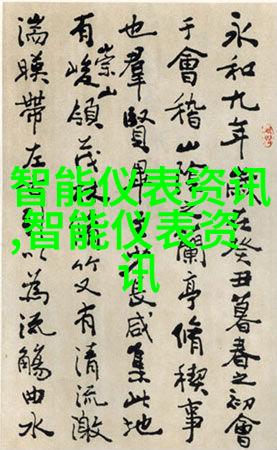 永和九年在癸丑暮春之初會
于會稽山陰蘭亭脩稧事
也羣賢畢長咸集此地
有崇山峻領茂竹又有清流激
湍暎帶左以為流觴曲水
智能仪表资讯
,智能仪表资
讯